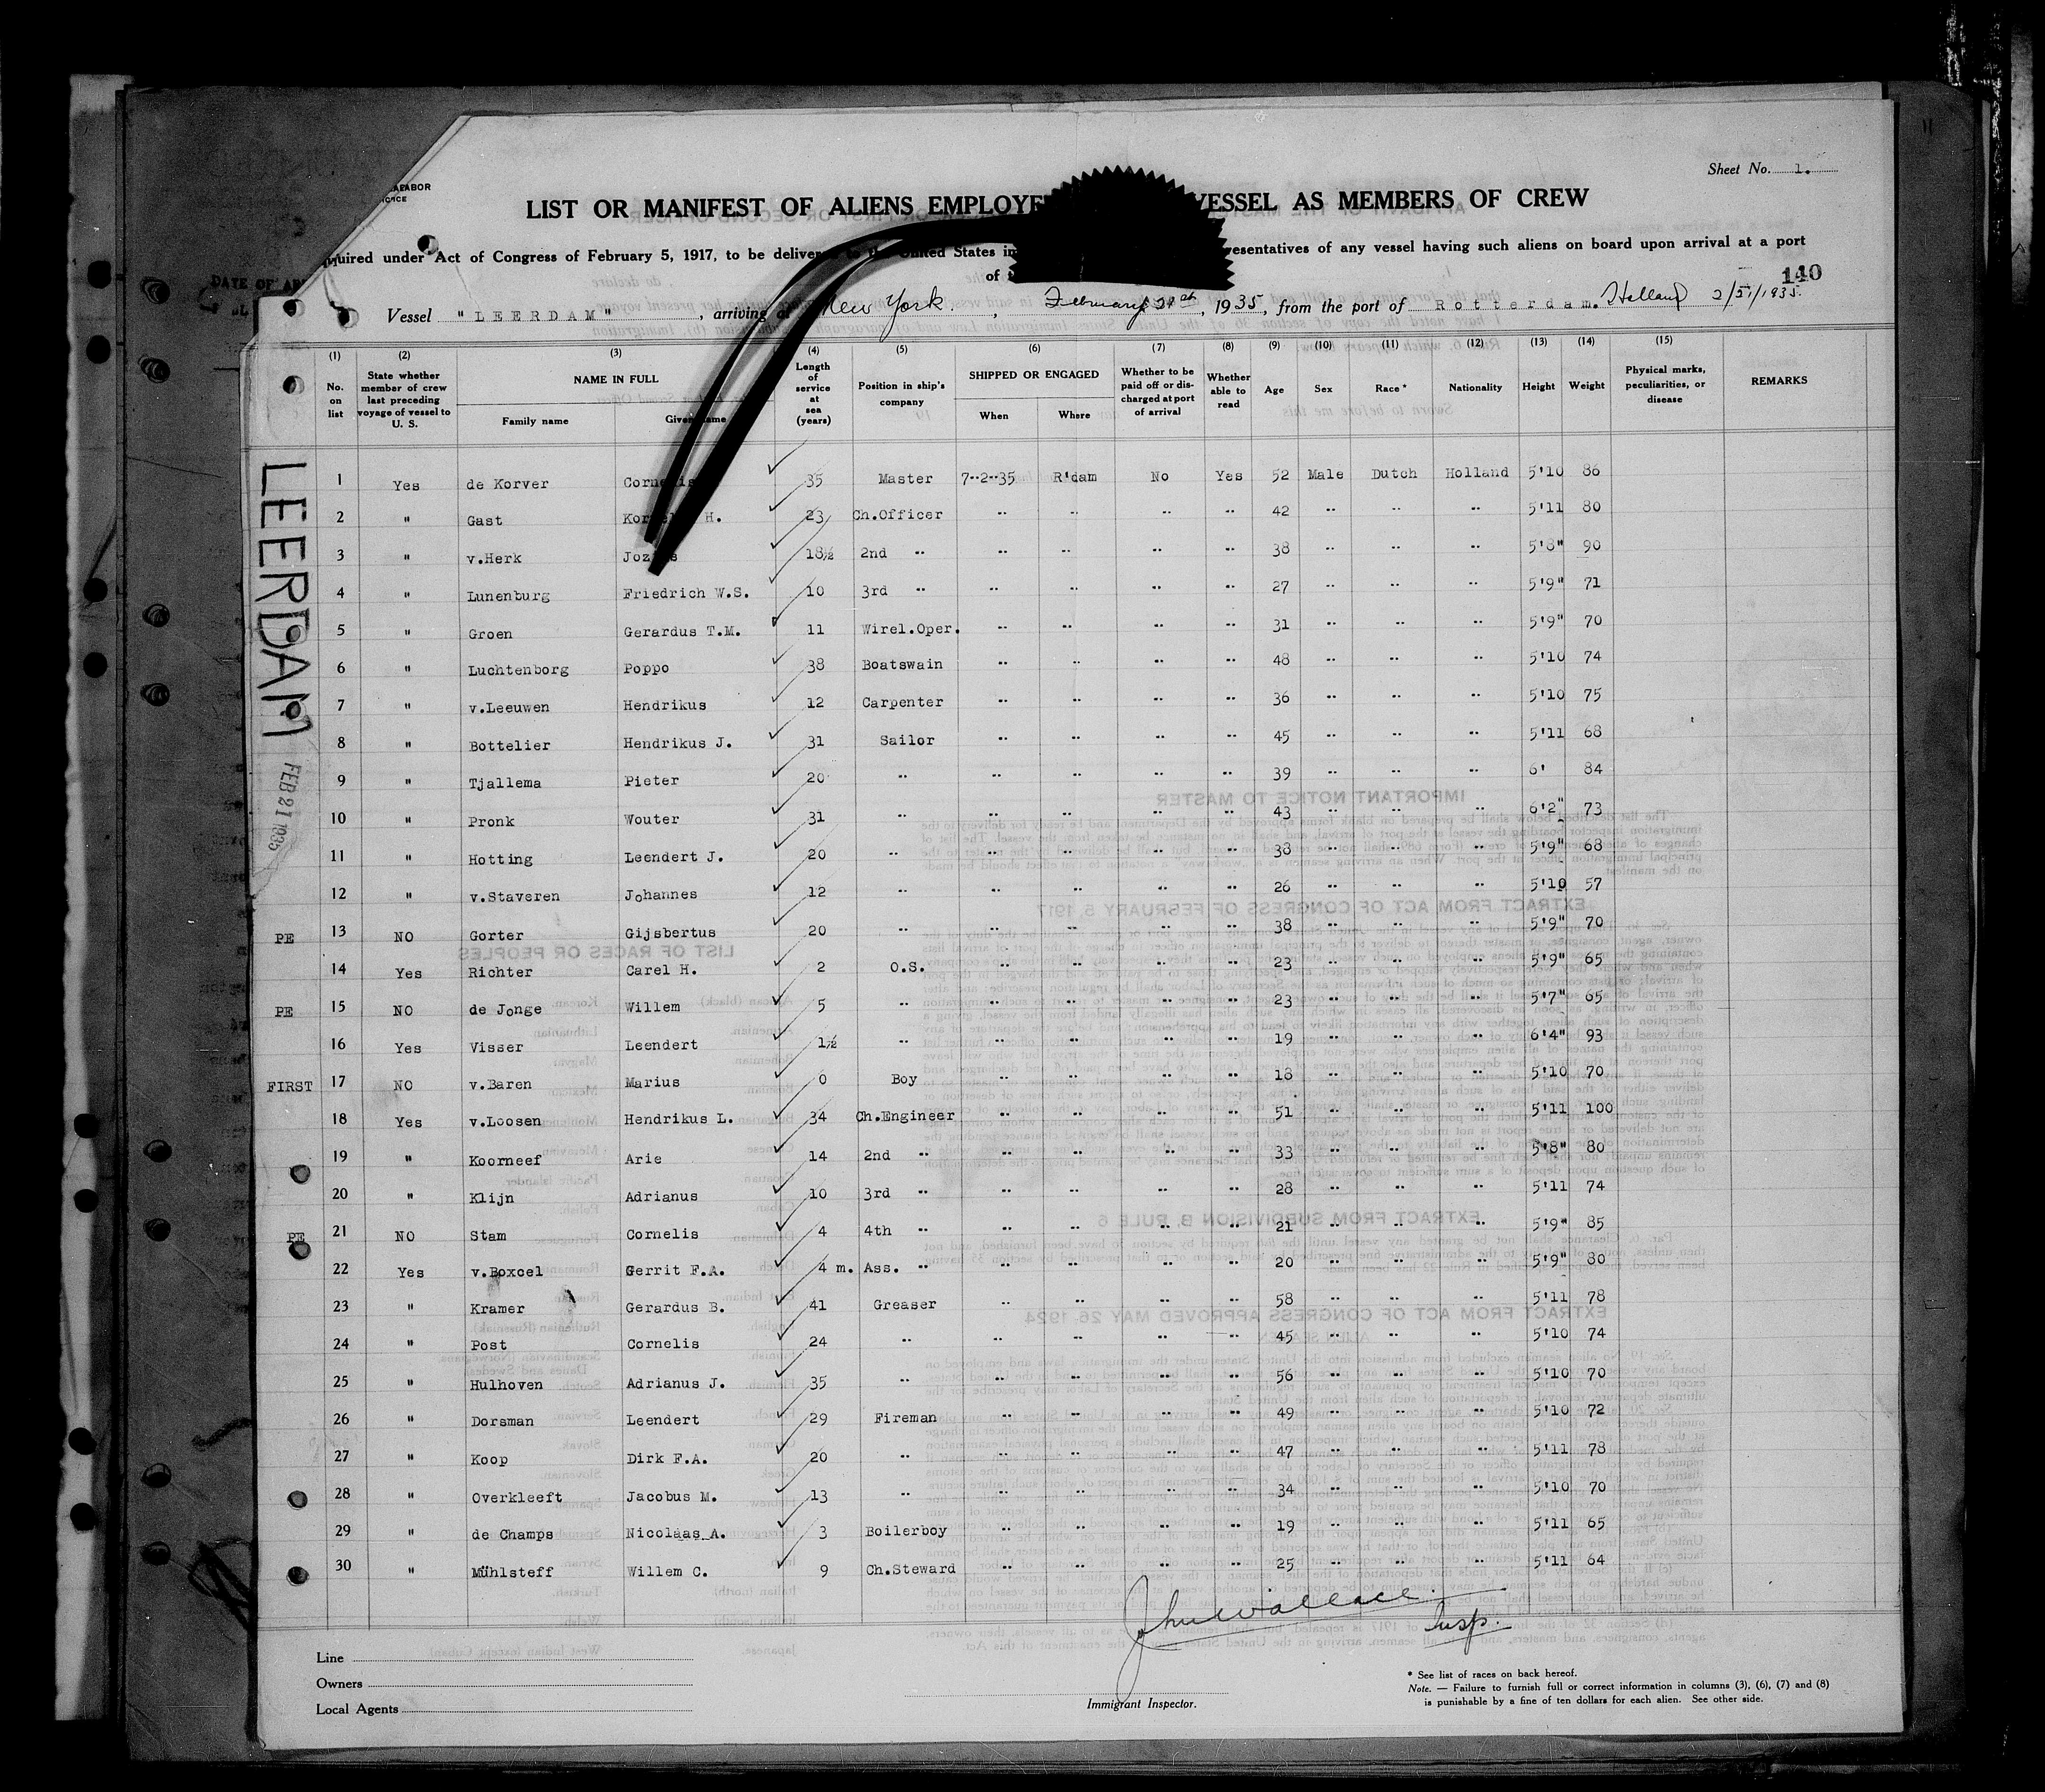 Sheet No. 1.
LIST OR MANIFEST OF ALIENS EMPLOYE VESSEL AS MEMBERS OF CREW
quired under Act of Congress of February 5, 1917, to be delivered to the United States im esentatives of any vessel having such aliens on board upon arrival at a port
of t
140
Vessel "LEERDAM", arriving at New York., February 21st, 1935, from the port of Rotterdam. Holland 2/5/1935.
(1) (2) (3) (4) (5) (6) (7) (8) (9) (10) (11) (12) (13) (14) (15)
No. on list State whether member of crew last preceding voyage of vessel to U. S. NAME IN FULL Family name Given name Length of service at sea (years) Position in ship's company SHIPPED OR ENGAGED When Where Whether to be paid off or discharged at port of arrival Whether able to read Age Sex Race* Nationality Height Weight Physical marks, peculiarities, or disease REMARKS
LEERDAM
FEB 21 1935
1 Yes de Korver Cornelis 35 Master 7-2-35 R'dam No Yes 52 Male Dutch Holland 5'10 86
2 " Gast Kornelis H. 23 Ch.Officer " " " " 42 " " " 5'11 80
3 " v.Herk Jozias 18½ 2nd " " " " " 38 " " " 5'8" 90
4 " Lunenburg Friedrich W.S. 10 3rd " " " " " 27 " " " 5'9" 71
5 " Groen Gerardus T.M. 11 Wirel.Oper. " " " " 31 " " " 5'9" 70
6 " Luchtenborg Poppo 38 Boatswain " " " " 48 " " " 5'10 74
7 " v.Leeuwen Hendrikus 12 Carpenter " " " " 36 " " " 5'10 75
8 " Bottelier Hendrikus J. 31 Sailor " " " " 45 " " " 5'11 68
9 " Tjallema Pieter 20 " " " " " 39 " " " 6' 84
10 " Pronk Wouter 31 " " " " " 43 " " " 6'2" 73
11 " Hotting Leendert J. 20 " " " " " 38 " " " 5'9" 68
12 " v.Staveren Johannes 12 " " " " " 26 " " " 5'10 57
PE 13 NO Gorter Gijsbertus 20 " " " " " 38 " " " 5'9" 70
14 Yes Richter Carel H. 2 O.S. " " " " 23 " " " 5'9" 65
PE 15 NO de Jonge Willem 5 " " " " " 23 " " " 5'7" 65
16 Yes Visser Leendert 1½ " " " " " 19 " " " 6'4" 93
FIRST 17 NO v.Baren Marius 0 Boy " " " " 18 " " " 5'10 70
18 Yes v.Loosen Hendrikus L. 34 Ch.Engineer " " " " 51 " " " 5'11 100
19 " Koorneef Arie 14 2nd " " " " " 33 " " " 5'8" 80
20 " Klijn Adrianus 10 3rd " " " " " 28 " " " 5'11 74
PE 21 NO Stam Cornelis 4 4th " " " " " 21 " " " 5'9" 85
22 Yes v.Boxcel Gerrit F.A. 4 m. Ass. " " " " " 20 " " " 5'9" 80
23 " Kramer Gerardus B. 41 Greaser " " " " 58 " " " 5'11 78
24 " Post Cornelis 24 " " " " " 45 " " " 5'10 74
25 " Hulhoven Adrianus J. 35 " " " " " 56 " " " 5'10 70
26 " Dorsman Leendert 29 Fireman " " " " 49 " " " 5'10 72
27 " Koop Dirk F.A. 20 " " " " " 47 " " " 5'11 78
28 " Overkleeft Jacobus M. 13 " " " " " 34 " " " 5'10 70
29 " de Champs Nicolaas A. 3 Boilerboy " " " " 19 " " " 5'11 65
30 " Mühlsteff Willem C. 9 Ch.Steward " " " " 25 " " " 5'11 64
John Wallace Insp.
Line
Owners
Local Agents
Immigrant Inspector.
* See list of races on back hereof.
Note. — Failure to furnish full or correct information in columns (3), (6), (7) and (8)
is punishable by a fine of ten dollars for each alien. See other side.